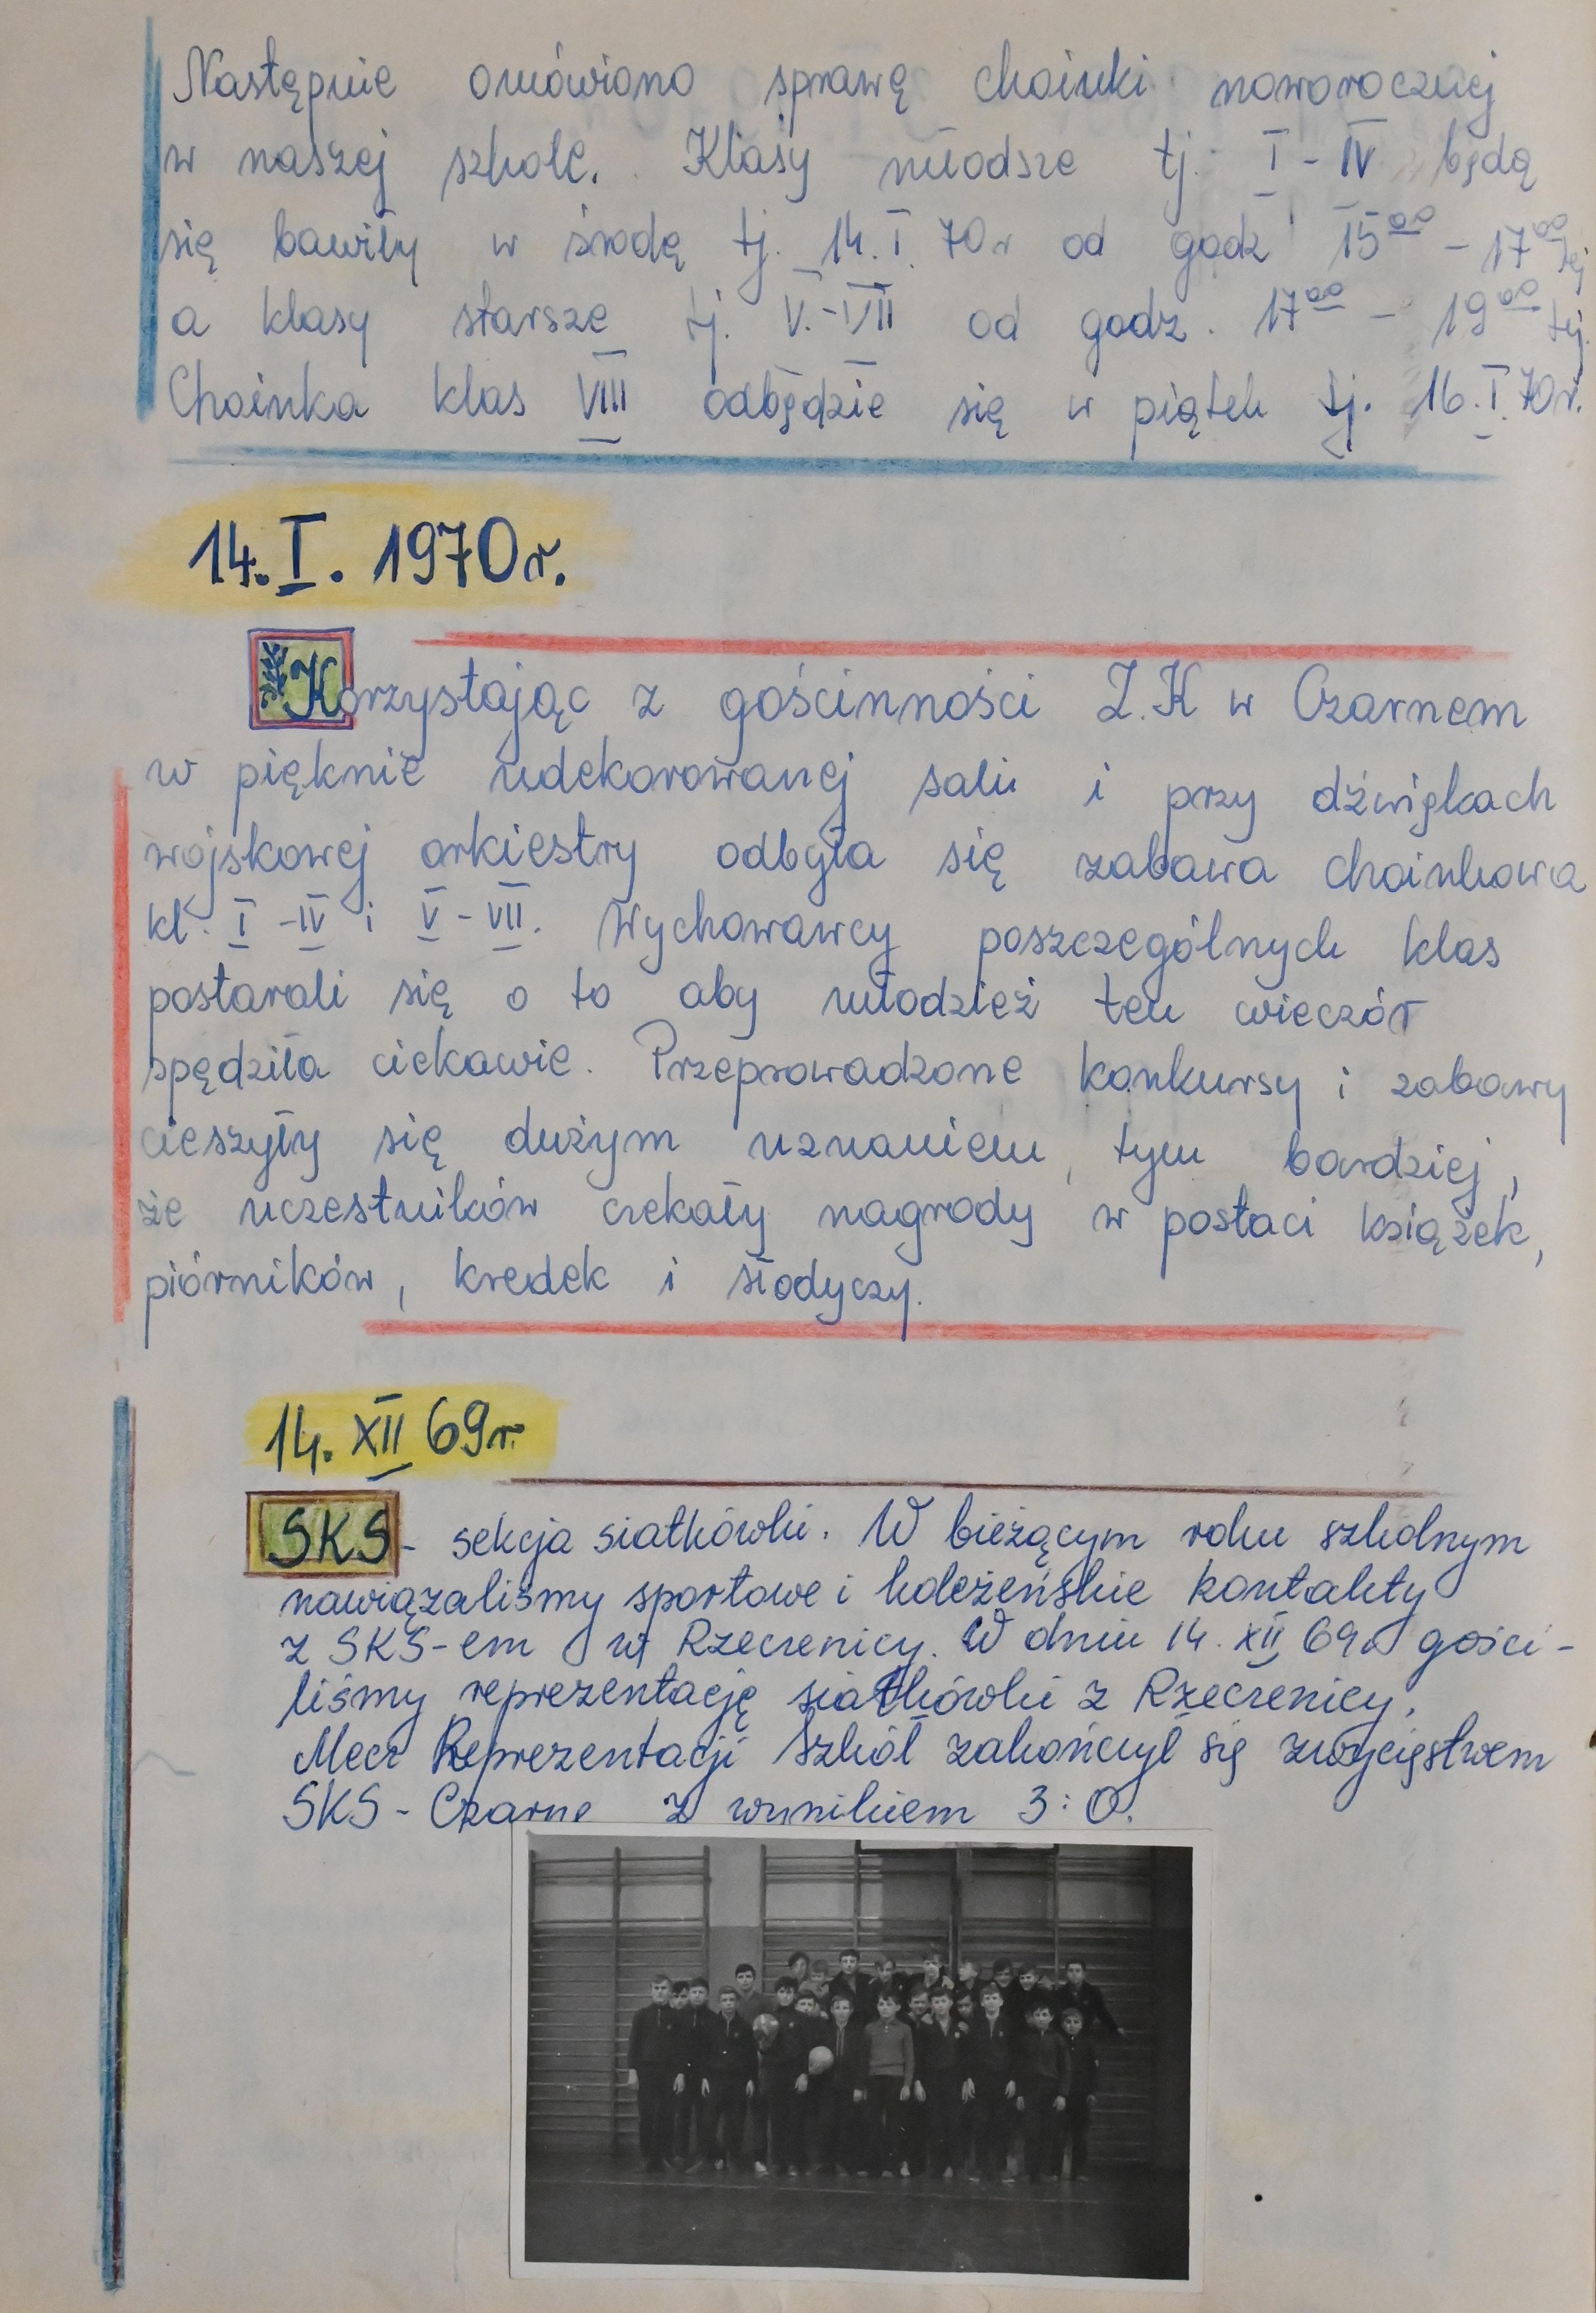 Następnie omówiono sprawę choinki noworocznej
w naszej szkole. Klasy młodsze tj. I - IV będą
się bawiły w środę tj. 14.I.70r od godz 15⁰⁰ - 17⁰⁰tej
a klasy starsze tj. V.-VII od godz. 17⁰⁰ - 19⁰⁰tej.
Choinka klas VIII odbędzie się w piątek tj. 16.I.70r.
14.I.1970r.
Korzystając z gościnności Z.K w Czarnem
w pięknie udekorowanej sali i przy dźwiękach
wojskowej orkiestry odbyła się zabawa choinkowa
kl. I -IV i V-VII. Wychowawcy poszczególnych klas
postarali się o to aby młodzież ten wieczór
spędziła ciekawie. Przeprowadzone konkursy i zabawy
cieszyły się dużym uznaniem, tym bardziej,
że uczestników czekały nagrody w postaci książek,
piórników, kredek i słodyczy.
14. XII 69r.
SKS - sekcja siatkówki. W bieżącym roku szkolnym
nawiązaliśmy sportowe i koleżeńskie kontakty
z SKS-em w Rzeczenicy. W dniu 14. XII 69r gości-
liśmy reprezentację siatkówki z Rzeczenicy.
Mecz Reprezentacji Szkół zakończył się zwycięstwem
SKS - Czarne z wynikiem 3:0.